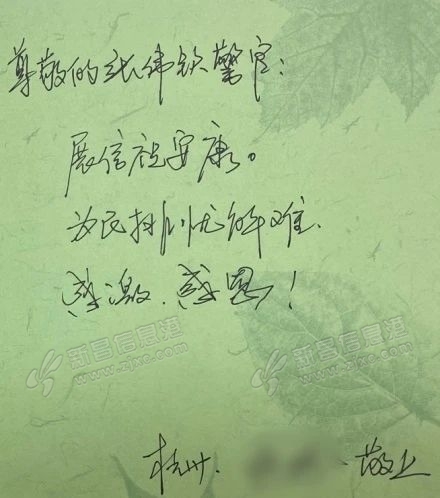 尊敬的张伟钦警官：
展信祝安康。
为民排忧解难.
感激.感恩！
新昌信息港
www.zjxc.com
新昌信息港
www.zjxc.com
杭州. 敬上